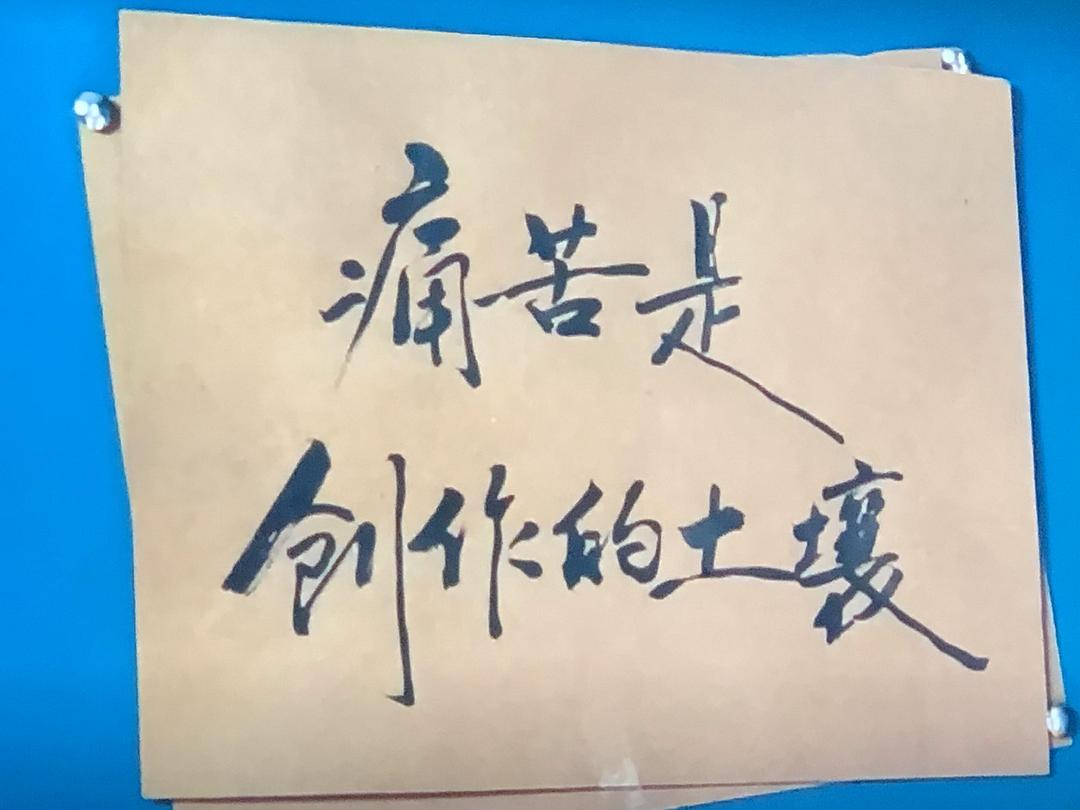 痛苦是
创作的土壤